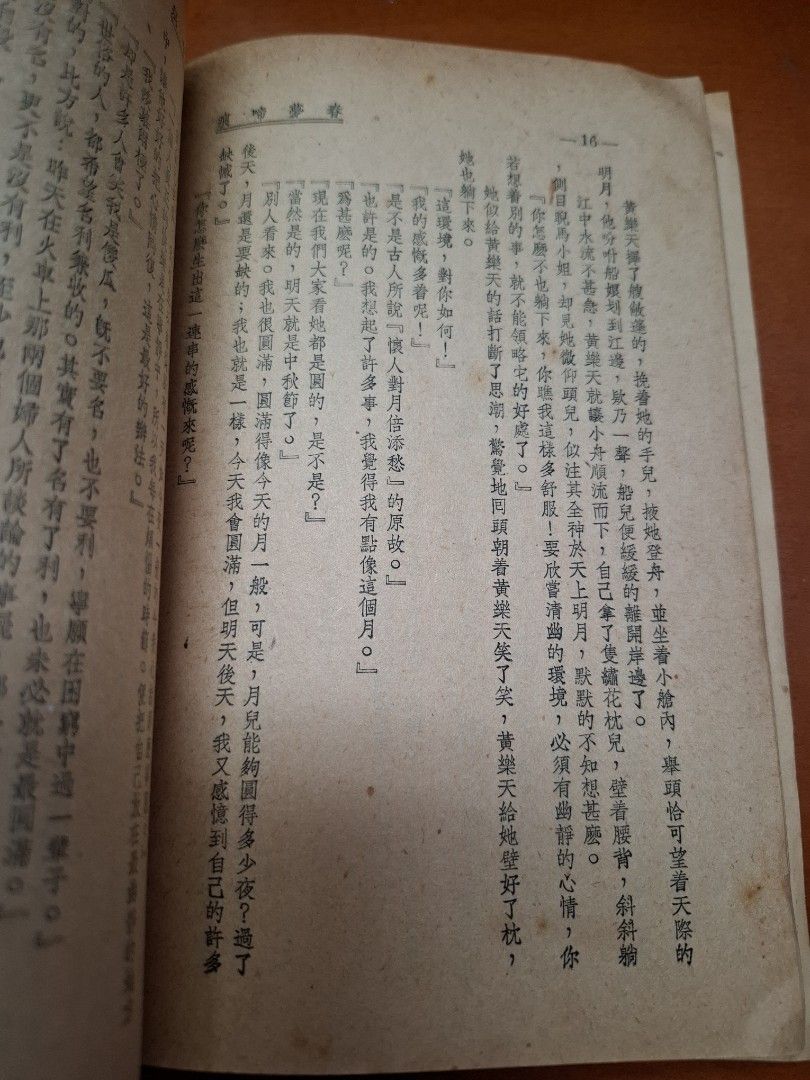 春夢啼痕
—16—
黃樂天擇了艘敞蓬的，挽着她的手兒，掖她登舟，並坐着小艙內，舉頭恰可望着天際的
明月，他吩咐船孃划到江邊，欵乃一聲，船兒便緩緩的離開岸邊了。
江中水流不甚急，黃樂天就讓小舟順流而下，自己拿了隻繡花枕兒，壁着腰背，斜斜躺
，側目睨馬小姐，却見她微仰頭兒，似注其全神於天上明月，默默的不知想甚麽。
『你怎麽不也躺下來，你瞧我這樣多舒服！要欣嘗清幽的環境，必須有幽靜的心情，你
若想着別的事，就不能領略它的好處了。』
她似給黃樂天的話打斷了思潮，驚覺地囘頭朝着黃樂天笑了笑，黃樂天給她壁好了枕，
她也躺下來。
『這環境，對你如何！』
『我的感慨多着呢！』
『是不是古人所說『懷人對月倍添愁』的原故。』
『也許是的。我想起了許多事，我覺得我有點像這個月。』
『爲甚麽呢？』
『現在我們大家看她都是圓的，是不是？』
『當然是的，明天就是中秋節了。』
『別人看來。我也很圓滿，圓滿得像今天的月一般，可是，月兒能夠圓得多少夜？過了
後天，月還是要缺的；我也就是一樣，今天我會圓滿，但明天後天，我又感憶到自己的許多
缺憾了。』
『你怎麽生出這一連串的感慨來呢？』
却是許多人會笑我是傻瓜，旣不要名，也不要利，寧願在困窮中過一輩子。』
的人，都希望名利兼收的。其實有了名有了利，也未必就是最圓滿。』
的，比方說：昨天在火車上那兩個婦人所談論的事